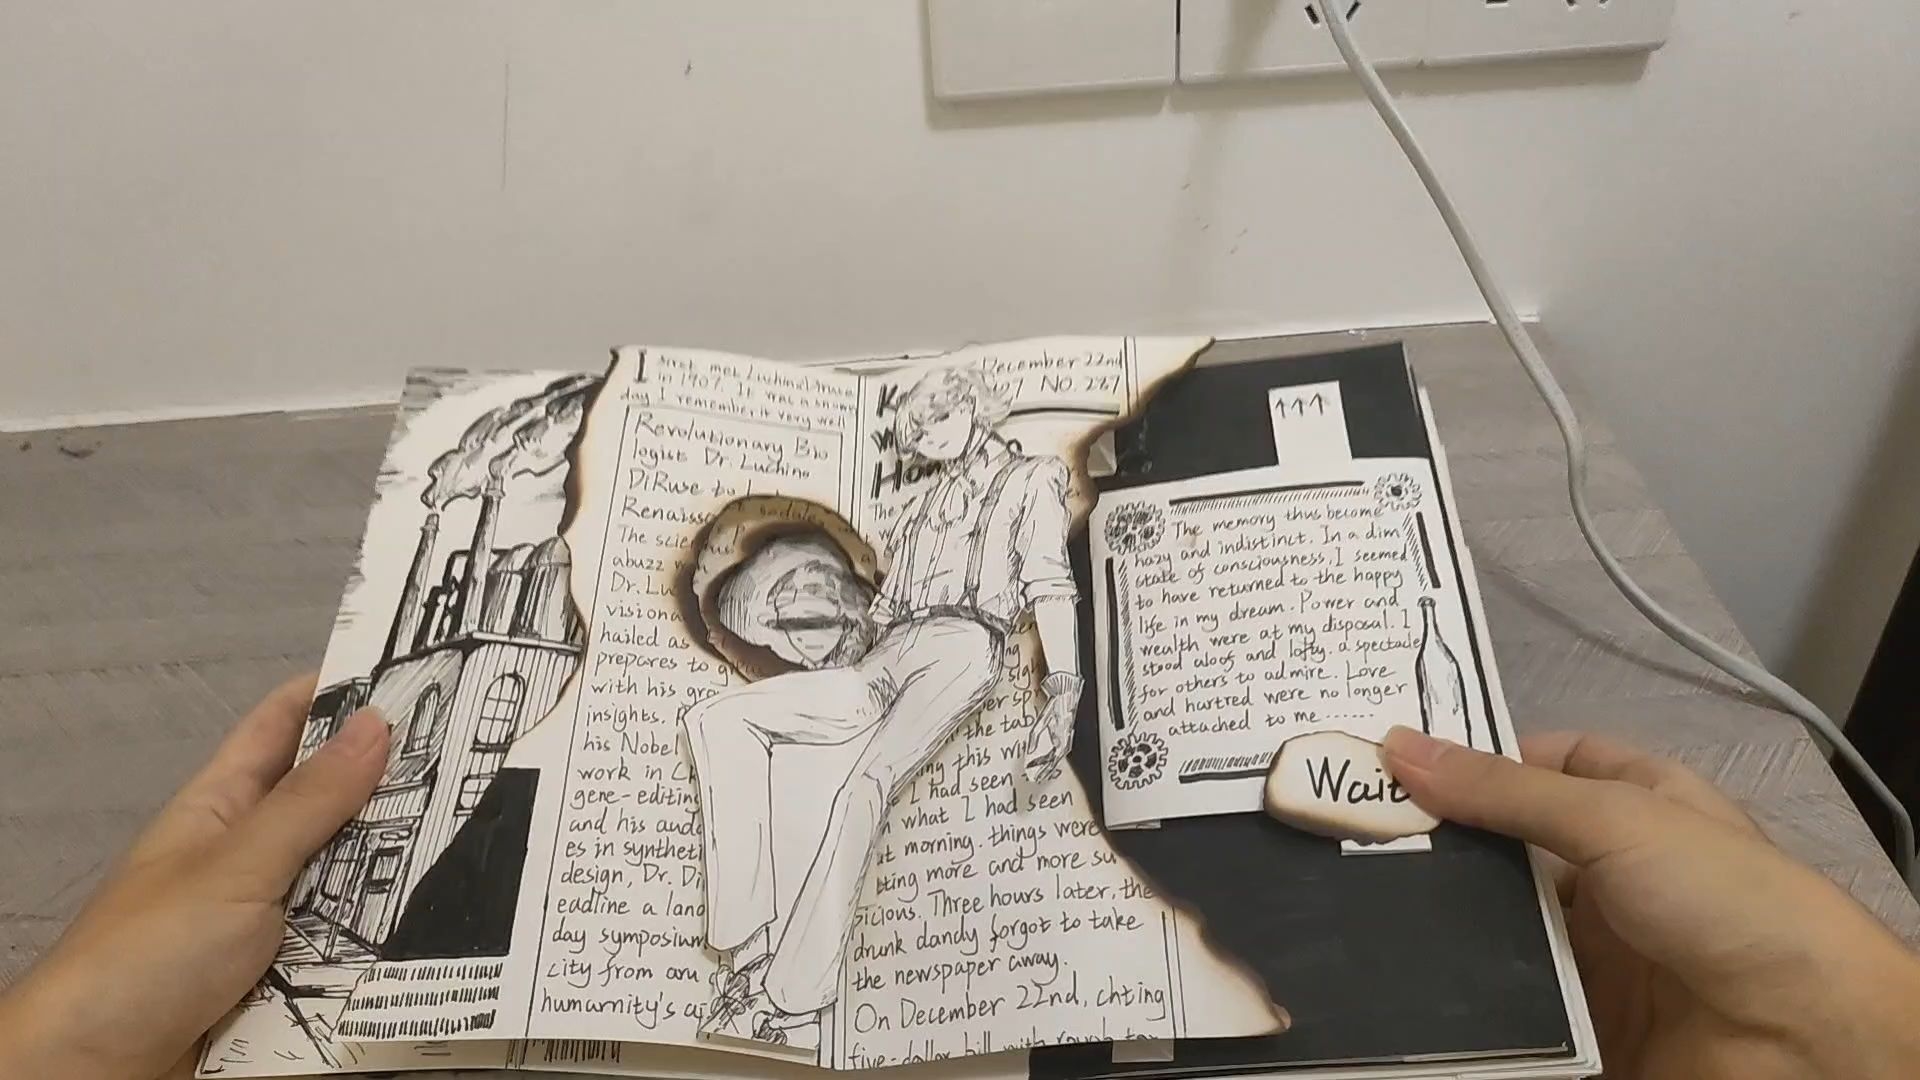 I first met Luchino Diruse
in 1907. It was a snowy
day I remember it very well
Revolutionary Bio
logist Dr. Luchino
DiRuse to
Renaiss
The scien
abuzz
Dr. Lu
visiona
hailed as
prepares to
with his gro
insights.
his Nobel
work in
gene-editing
and his auda
es in syntheti
design, Dr. Di
eadline a land
day symposium
city from
humarnity's
December 22nd
07 NO. 287
K
Hon
The
the tab
ing this wi
I had seen
what I had seen
at morning. things were
tting more and more su
sicious. Three hours later, the
drunk dandy forgot to take
the newspaper away.
On December 22nd, chting
five-dollar bill with rough
↑↑↑
The memory thus become
hazy and indistinct. In a dim
state of consciousness, I seemed
to have returned to the happy
life in my dream. Power and
wealth were at my disposal. I
stood aloof and lofty. a spectacle
for others to admire. Love
and hartred were no longer
attached to me ......
Wait